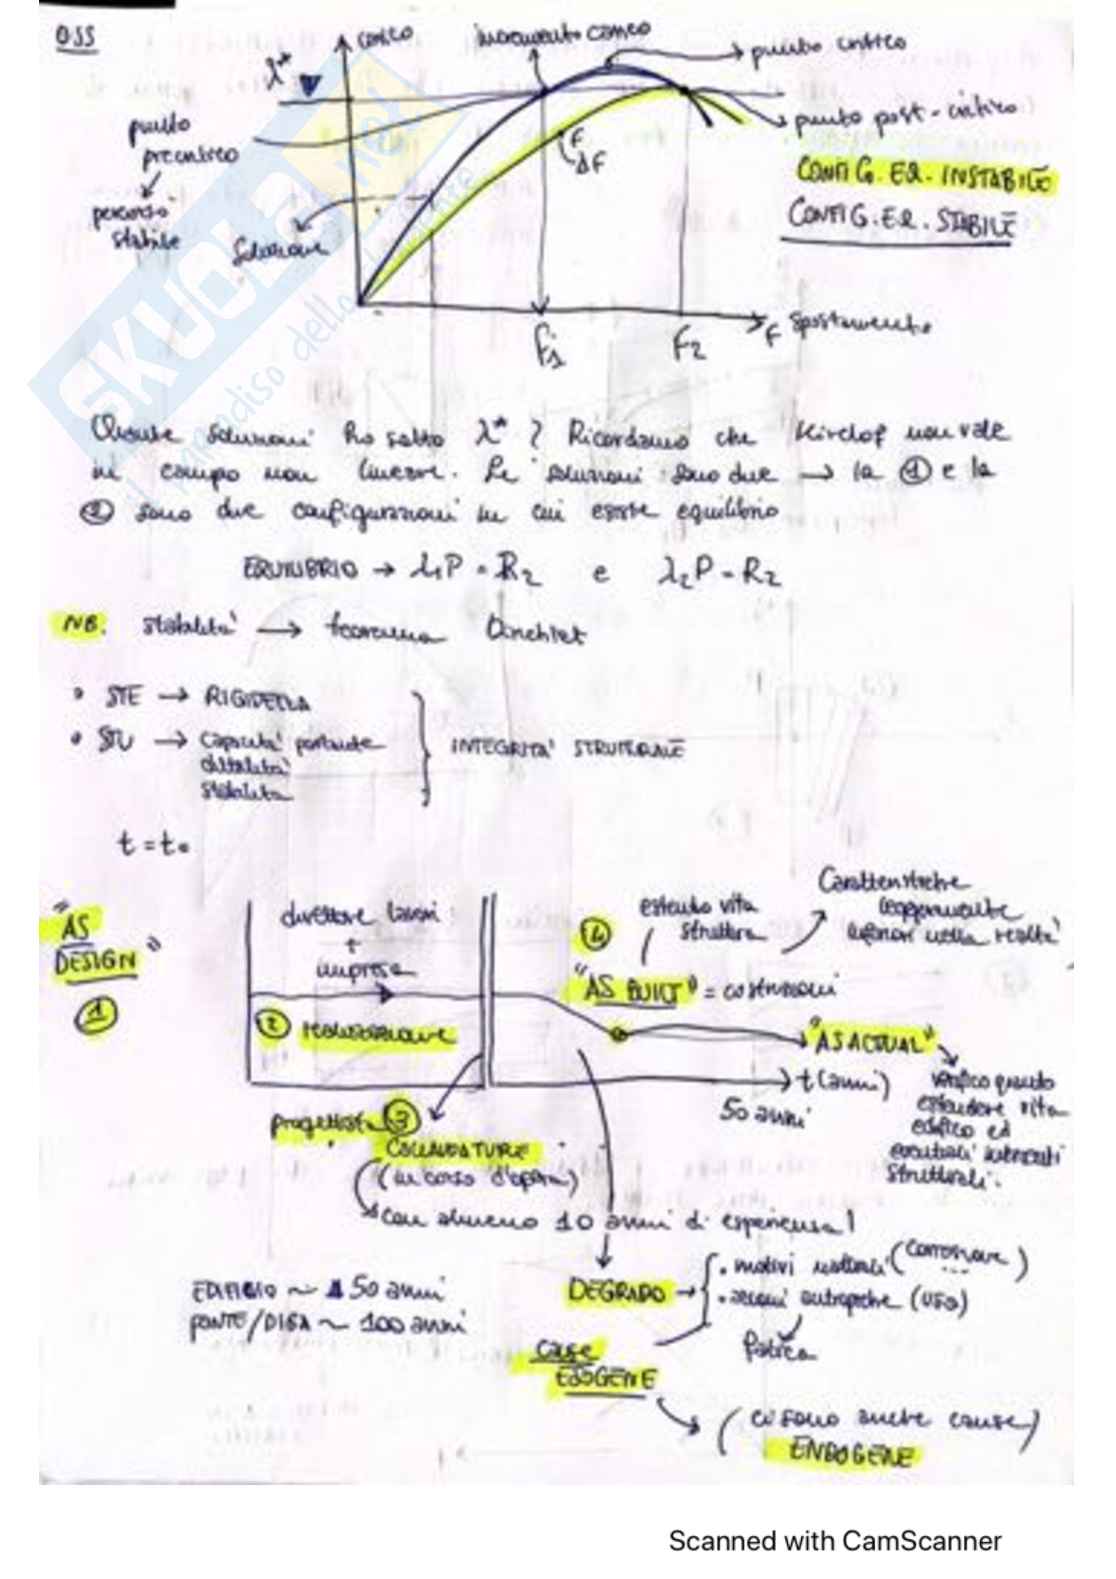 OSS
carico
incremento carico
punto critico
λ*
punto
precritico
punto post-critico
F
ΔF
CONFIG. EQ. INSTABILE
percorso
stabile
CONFIG. EQ. STABILE
Soluzione
F1
F2
F spostamento
SKUOLA.net
il paradiso dello
Quante soluzioni ho sotto λ* ? Ricordiamo che Kirclof non vale
in campo non lineare. Le soluzioni sono due → la 1 e la
2 sono due configurazioni in cui esiste equilibrio
EQUILIBRIO → λ1P = R2 e λ2P = R2
NB. stabilità → teorema Dirichlet
• STE → RIGIDEZZA
• STU → capacità portante
duttilità
stabilità
INTEGRITA' STRUTTURALE
t = t0
"AS
DESIGN"
1
direttore lavori
+
impresa
2 realizzazione
4
estendo vita
struttura
Caratteristiche
leggermente
inferiori nella realtà
"AS BUILT" = costruzioni
"AS ACTUAL"
t (anni)
50 anni
verifico quando
estendere vita
edificio ed
eventuali interventi
strutturali.
progettista 3
COLLAUDATORE
(in corso d'opera)
con almeno 10 anni di esperienza!
EDIFICIO ~ 50 anni
PONTE/DIGA ~ 100 anni
DEGRADO →
• motivi naturali (corrosione ...)
• azioni antropiche (USO)
fatica
CAUSE
ESOGENE
(ci sono anche cause)
ENDOGENE
Scanned with CamScanner